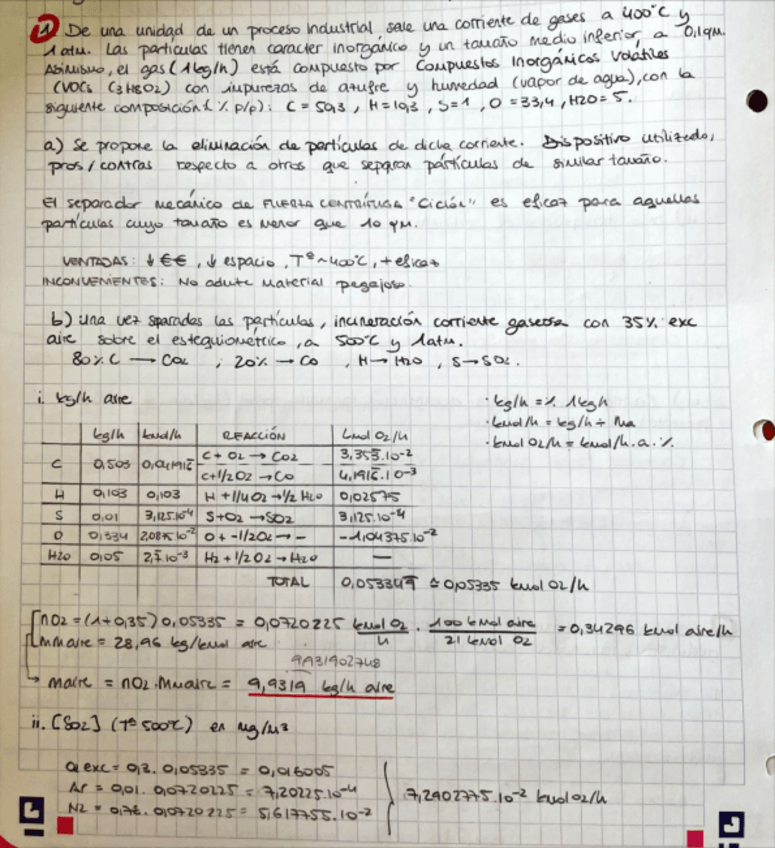 1 De una unidad de un proceso industrial, sale una corriente de gases a 400°C y
1 atm. Las partículas tienen caracter inorgánico y un tamaño medio inferior a 0,1 μm.
Asimismo, el gas (1 kg/h) está compuesto por Compuestos Inorgánicos Volátiles
(VOCs C3H8O2) con impurezas de azufre y humedad (vapor de agua), con la
siguiente composición (% p/p): C = 50,3 , H = 10,3 , S = 1 , O = 33,4 , H2O = 5.
a) Se propone la eliminación de partículas de dicha corriente. Dispositivo utilizado,
pros / contras respecto a otros que separan partículas de similar tamaño.
El separador mecánico de FUERZA CENTRÍFUGA "Ciclón" es eficaz para aquellas
partículas cuyo tamaño es menor que 10 μm.
VENTAJAS: ↓ €€, ↓ espacio, Tª ~ 400°C, + eficaz
INCONVENIENTES: No admite material pegajoso
b) Una vez separadas las partículas, incineración corriente gaseosa con 35% exc
aire sobre el estequiométrico, a 500°C y 1 atm.
80% C → CO2 ; 20% → CO , H → H2O , S → SO2.
i. kg/h aire
· kg/h = % 1 kg h
· kmol/h = kg/h ÷ Ma
· kmol O2/h = kmol/h . a . %
kg/h kmol/h REACCIÓN kmol O2/h
C 0,503 0,041916 C + O2 → CO2 3,353.10-2
C + 1/2 O2 → CO 4,1916.10-3
H 0,103 0,103 H + 1/4 O2 → 1/2 H2O 0,02575
S 0,01 3,125.10-4 S + O2 → SO2 3,125.10-4
O 0,334 2,0875.10-2 O + -1/2 O2 → - -1,04375.10-2
H2O 0,05 2,7.10-3 H2 + 1/2 O2 → H2O —
TOTAL 0,053349 ≃ 0,05335 kmol O2/h
nO2 = (1 + 0,35) 0,05335 = 0,0720225 kmol O2/h . 100 kmol aire / 21 kmol O2 = 0,34296 kmol aire/h
Mmaire = 28,96 kg/kmol aire
9,931902748
maire = nO2 . Mmaire = 9,9319 kg/h aire
ii. [SO2] (Tª 500°C) en mg/m3
O2 exc = 0,3 . 0,05335 = 0,016005
Ar = 0,01 . 0,0720225 = 7,20225.10-4
N2 = 0,78 . 0,0720225 = 5,617755.10-2
7,2902775.10-2 kmol O2/h